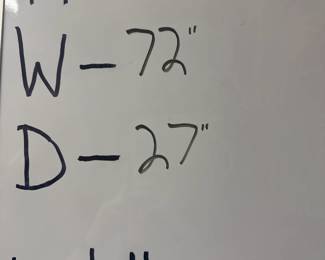 W - 72"
D - 27"